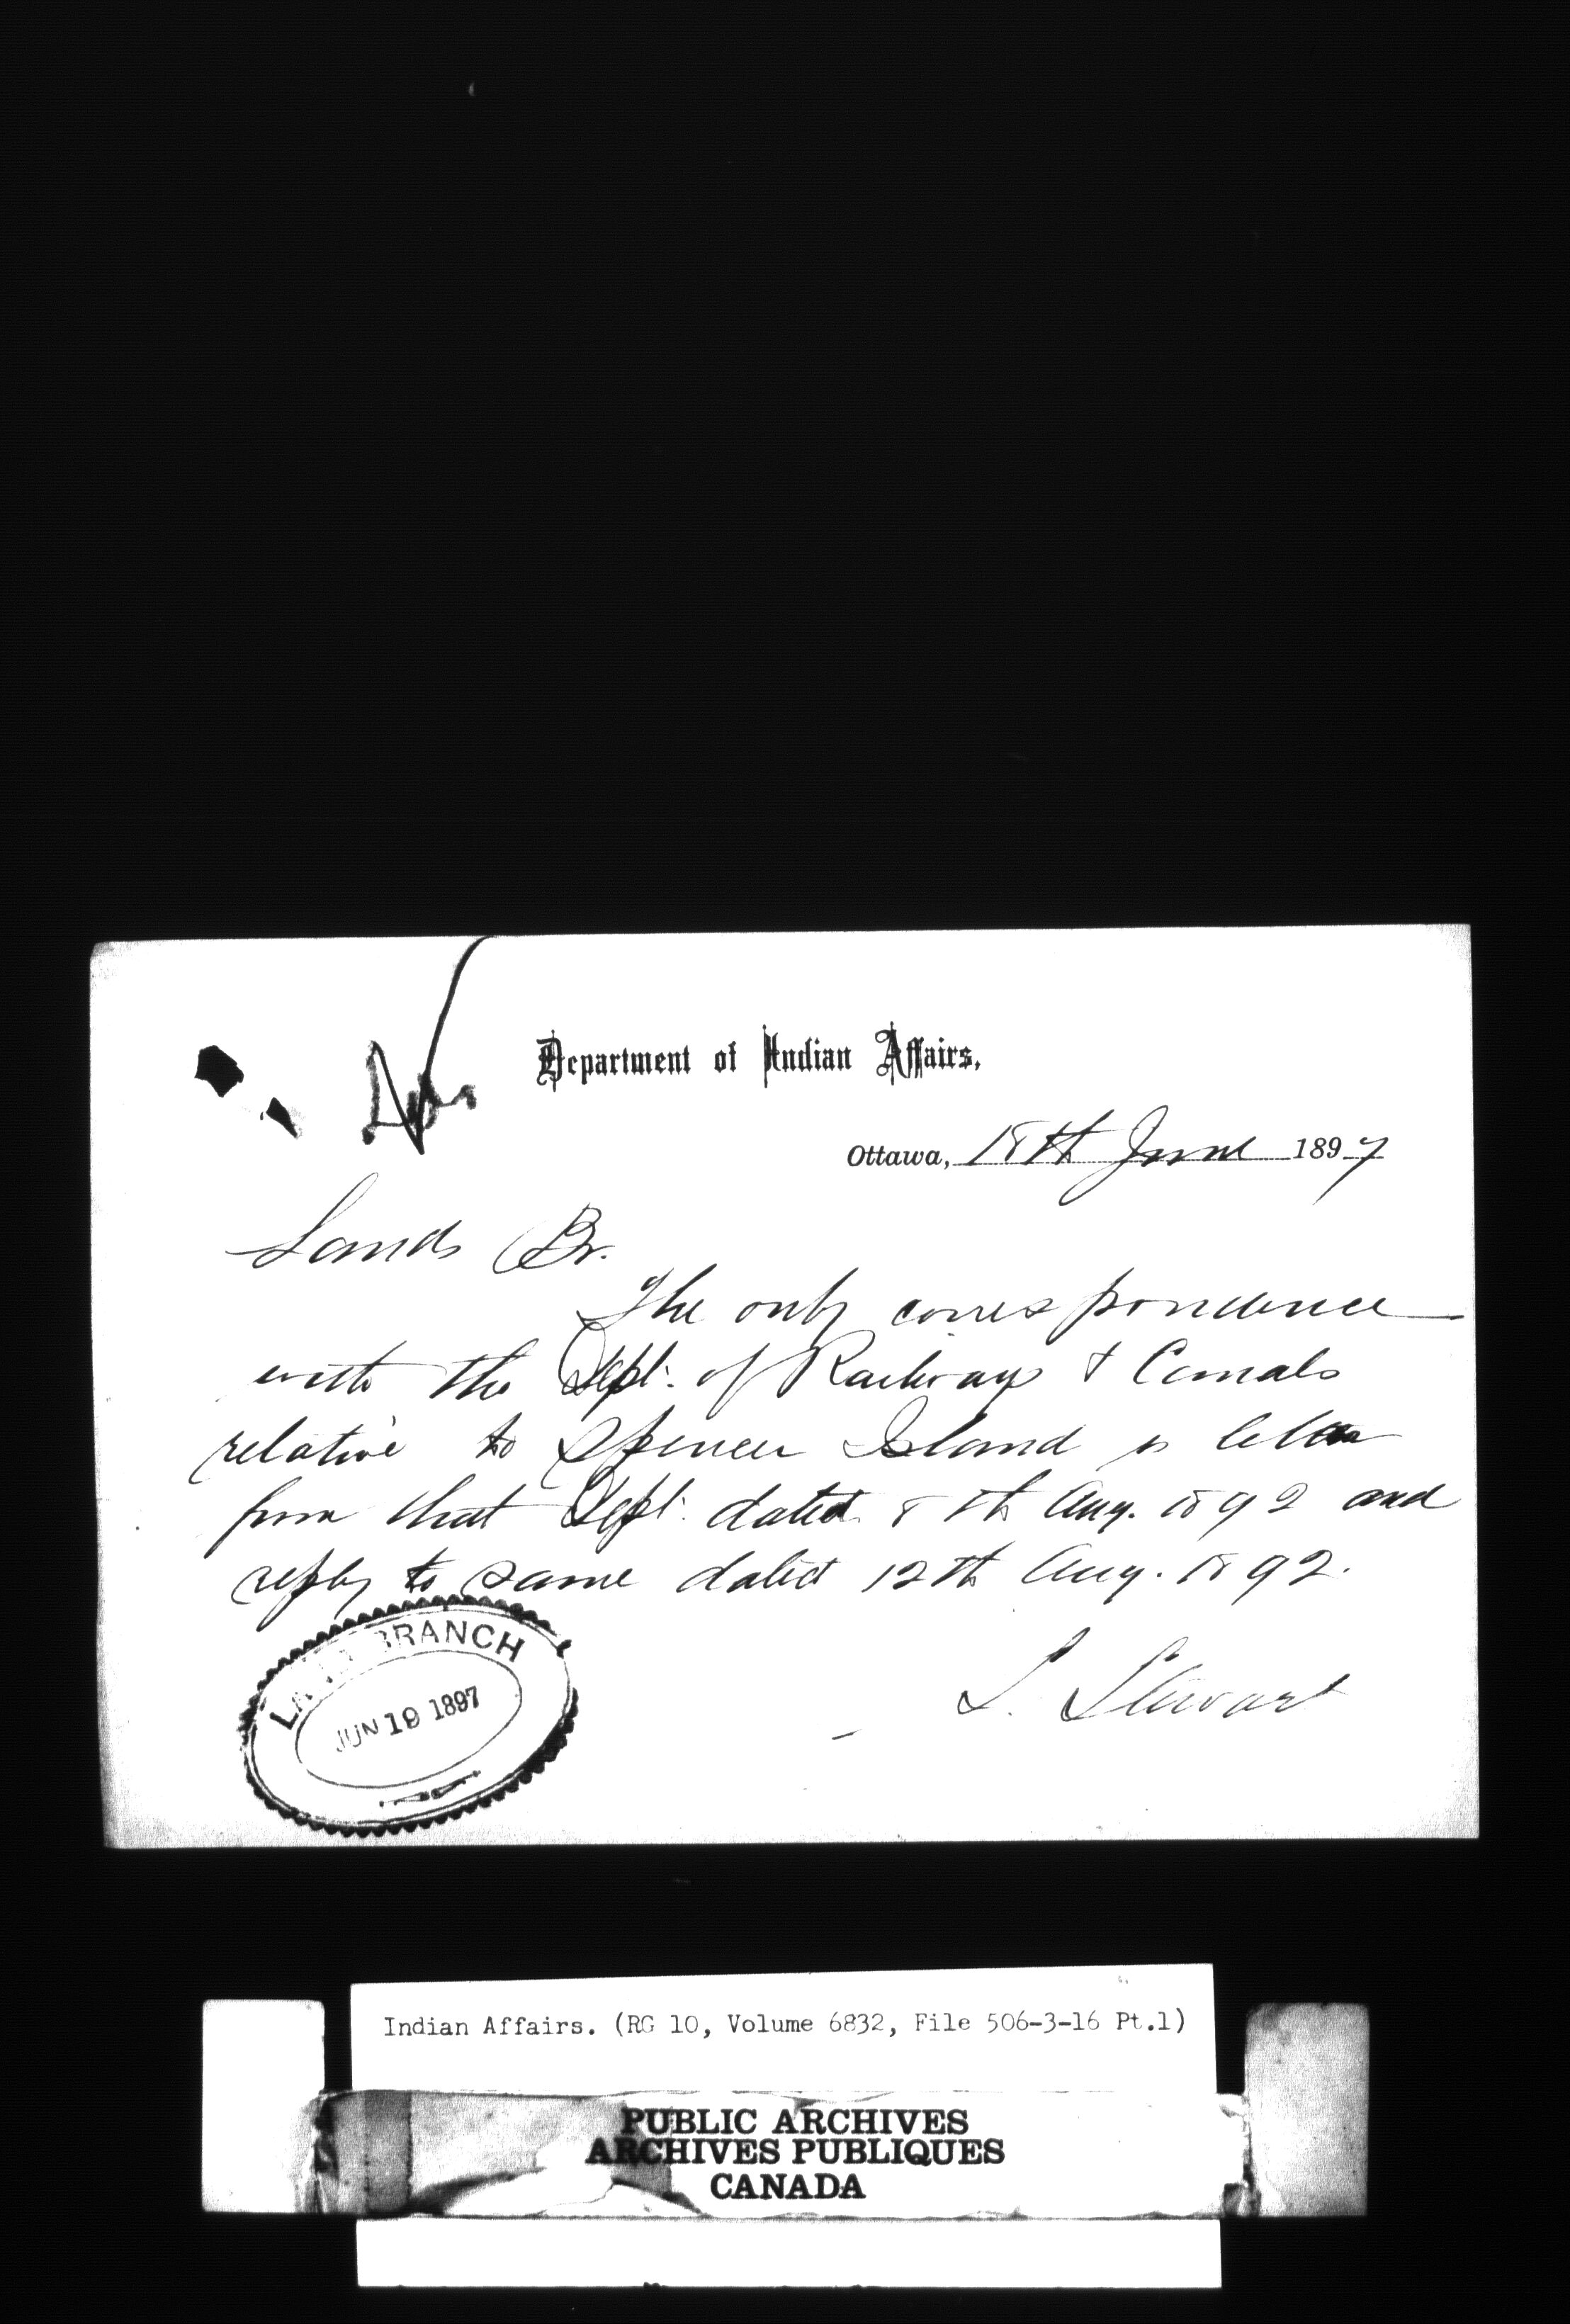 Department of Indian Affairs.
Ottawa, 18th June 1897
Lands Br.
The only correspondence
with the Dept. of Railways & Canals
relative to Spencer Island is letter
from that Dept. dated 8th Aug. 1892 and
reply to same dated 12th Aug. 1892.
S. Stewart
LAND BRANCH
JUN 19 1897
Indian Affairs. (RG 10, Volume 6832, File 506-3-16 Pt.1)
PUBLIC ARCHIVES
ARCHIVES PUBLIQUES
CANADA